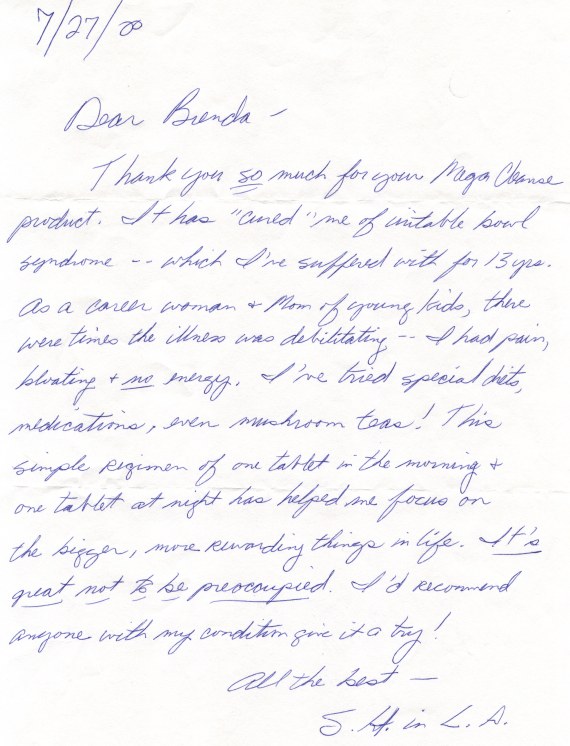 7/27/00
Dear Brenda -
Thank you so much for your Mega Cleanse
product. It has "cured" me of irritable bowl
syndrome -- which I've suffered with for 13 yrs.
As a career woman + Mom of young kids, there
were times the illness was debilitating -- I had pain,
bloating + no energy. I've tried special diets,
medications, even mushroom teas! This
simple regimen of one tablet in the morning +
one tablet at night has helped me focus on
the bigger, more rewarding things in life. It's
great not to be preocupied. I'd recommend
anyone with my condition give it a try!
All the best -
S. H. in L. A.